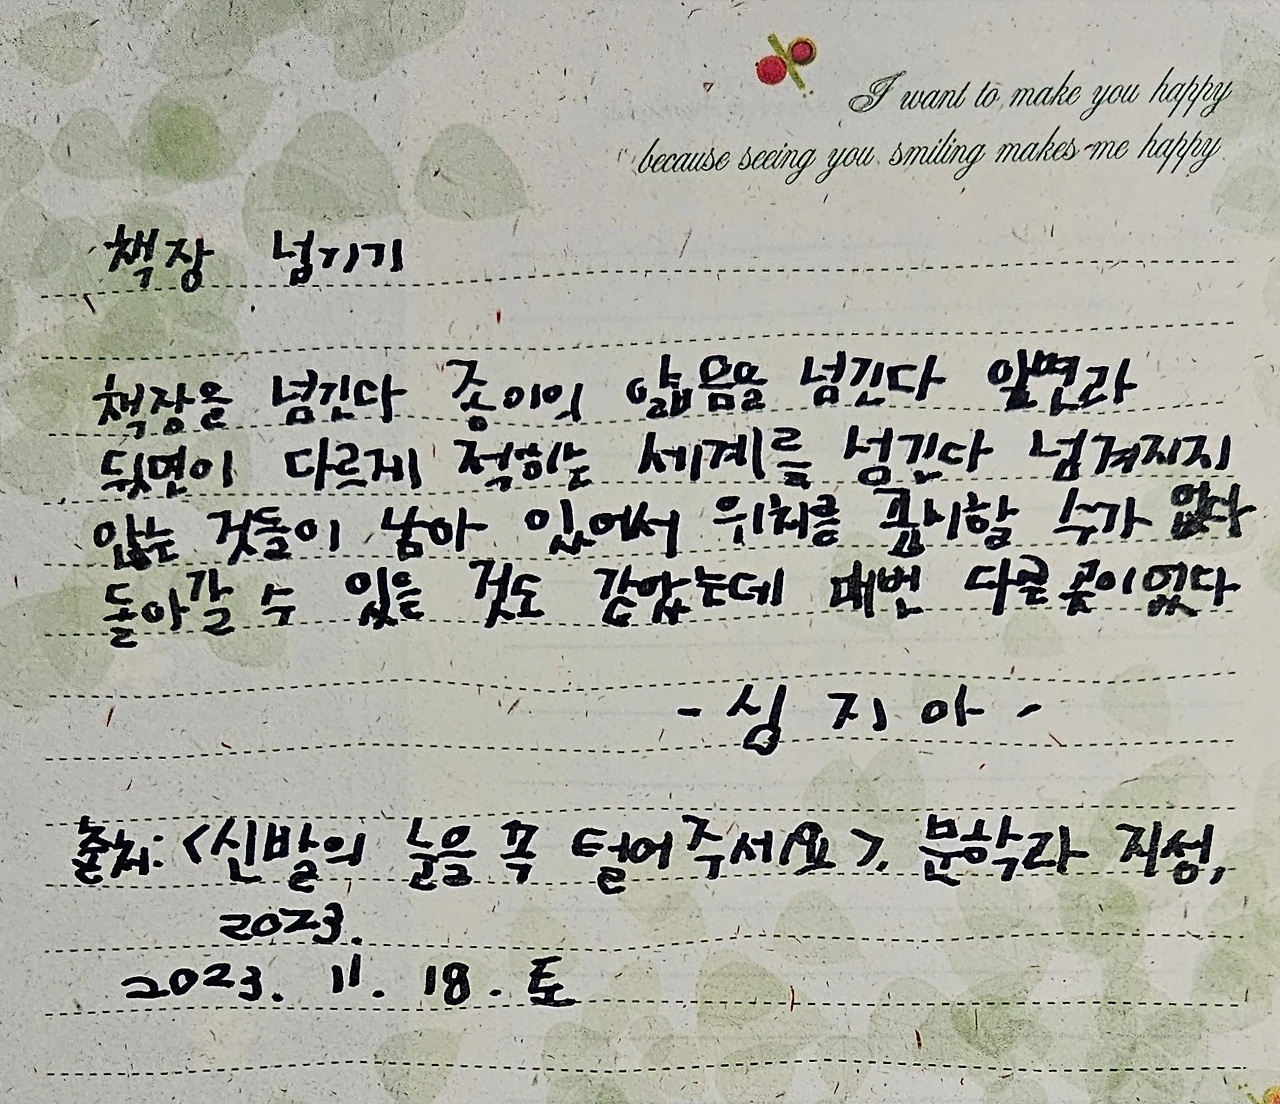 I want to make you happy
because seeing you smiling makes me happy
책장 넘기기
책장을 넘긴다 종이의 얇음을 넘긴다 앞면과
뒷면이 다르게 적히는 세계를 넘긴다 넘겨지지
않는 것들이 남아 있어서 위치를 표시할 수가 없다
돌아갈 수 있을 것도 같았는데 매번 다른 곳이었다
- 심지아 -
출처: <신발의 눈을 꼭 털어주세요>, 문학과 지성,
2023.
2023. 11. 18. 토